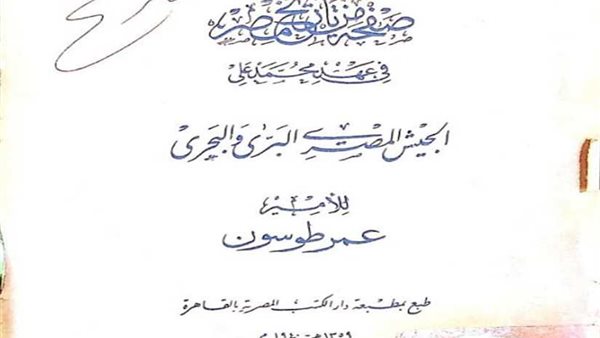 صفحة من تاريخ مصر
في عهد محمد علي
الجيش المصري البري والبحري
للأمير
عمر طوسون
طبع بمطبعة دار الكتب المصرية بالقاهرة
١٣٥٩ هـ - ١٩٤٠ م